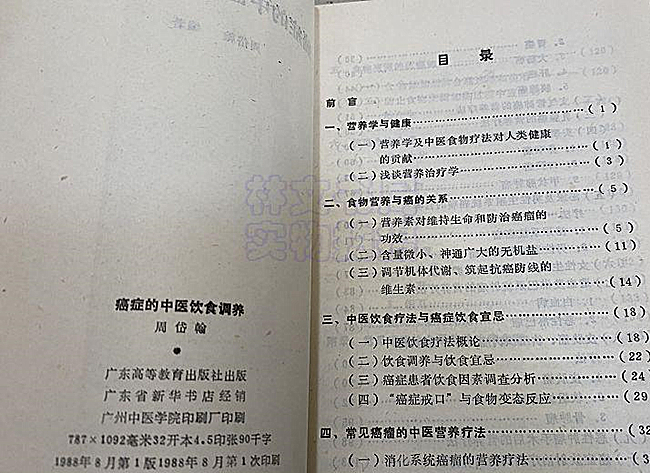 癌症的中医饮食调养
周岱翰
广东高等教育出版社出版
广东省新华书店经销
广州中医学院印刷厂印刷
787×1092毫米32开本4.5印张90千字
1988年8月第1版1988年8月第1次印刷
目 录
前 言
一、营养学与健康……(1)
(一)营养学及中医食物疗法对人类健康
的贡献……(1)
(二)浅谈营养治疗学……(3)
二、食物营养与癌的关系……(5)
(一)营养素对维持生命和防治癌瘤的
功效……(5)
(二)含量微小、神通广大的无机盐……(11)
(三)调节机体代谢、筑起抗癌防线的
维生素……(14)
三、中医饮食疗法与癌症饮食宜忌……(18)
(一)中医饮食疗法概论……(18)
(二)饮食调养与饮食宜忌……(22)
(三)癌症患者饮食因素调查分析……(24
(四)“癌症戒口”与食物变态反应……(29
四、常见癌瘤的中医营养疗法……(32
(一)消化系统癌瘤的营养疗法